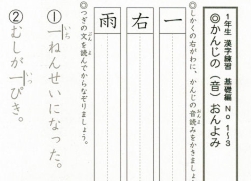 1年生 漢字練習 基礎編 No 1～3
◎かんじの（音）おんよみ
◎しかくの右がわに、かんじの音読みをかきましょう。
一
右
雨
◎つぎの文を読んでからなぞりましょう。
①一ねんせいになった。
いち
②むしが一ぴき。
いっ